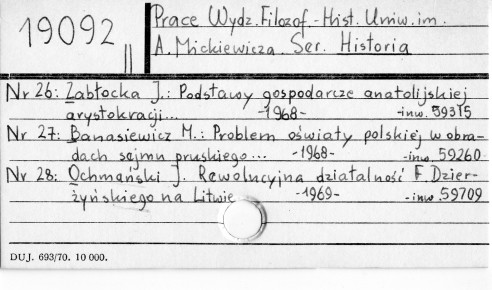 19092 || Prace Wydz. Filozof.-Hist. Uniw. im.
A. Mickiewicza. Ser. Historia
Nr 26: Zabłocka J.: Podstawy gospodarcze anatolijskiej
arystokracji... -1968- -inw. 59315
Nr 27: Banasiewicz M.: Problem oświaty polskiej w obra-
dach sejmu pruskiego... -1968- -inw. 59260
Nr 28: Ochmański J. Rewolucyjna działalność F. Dzier-
żyńskiego na Litwie -1969- -inw. 59709
DUJ. 693/70. 10 000.